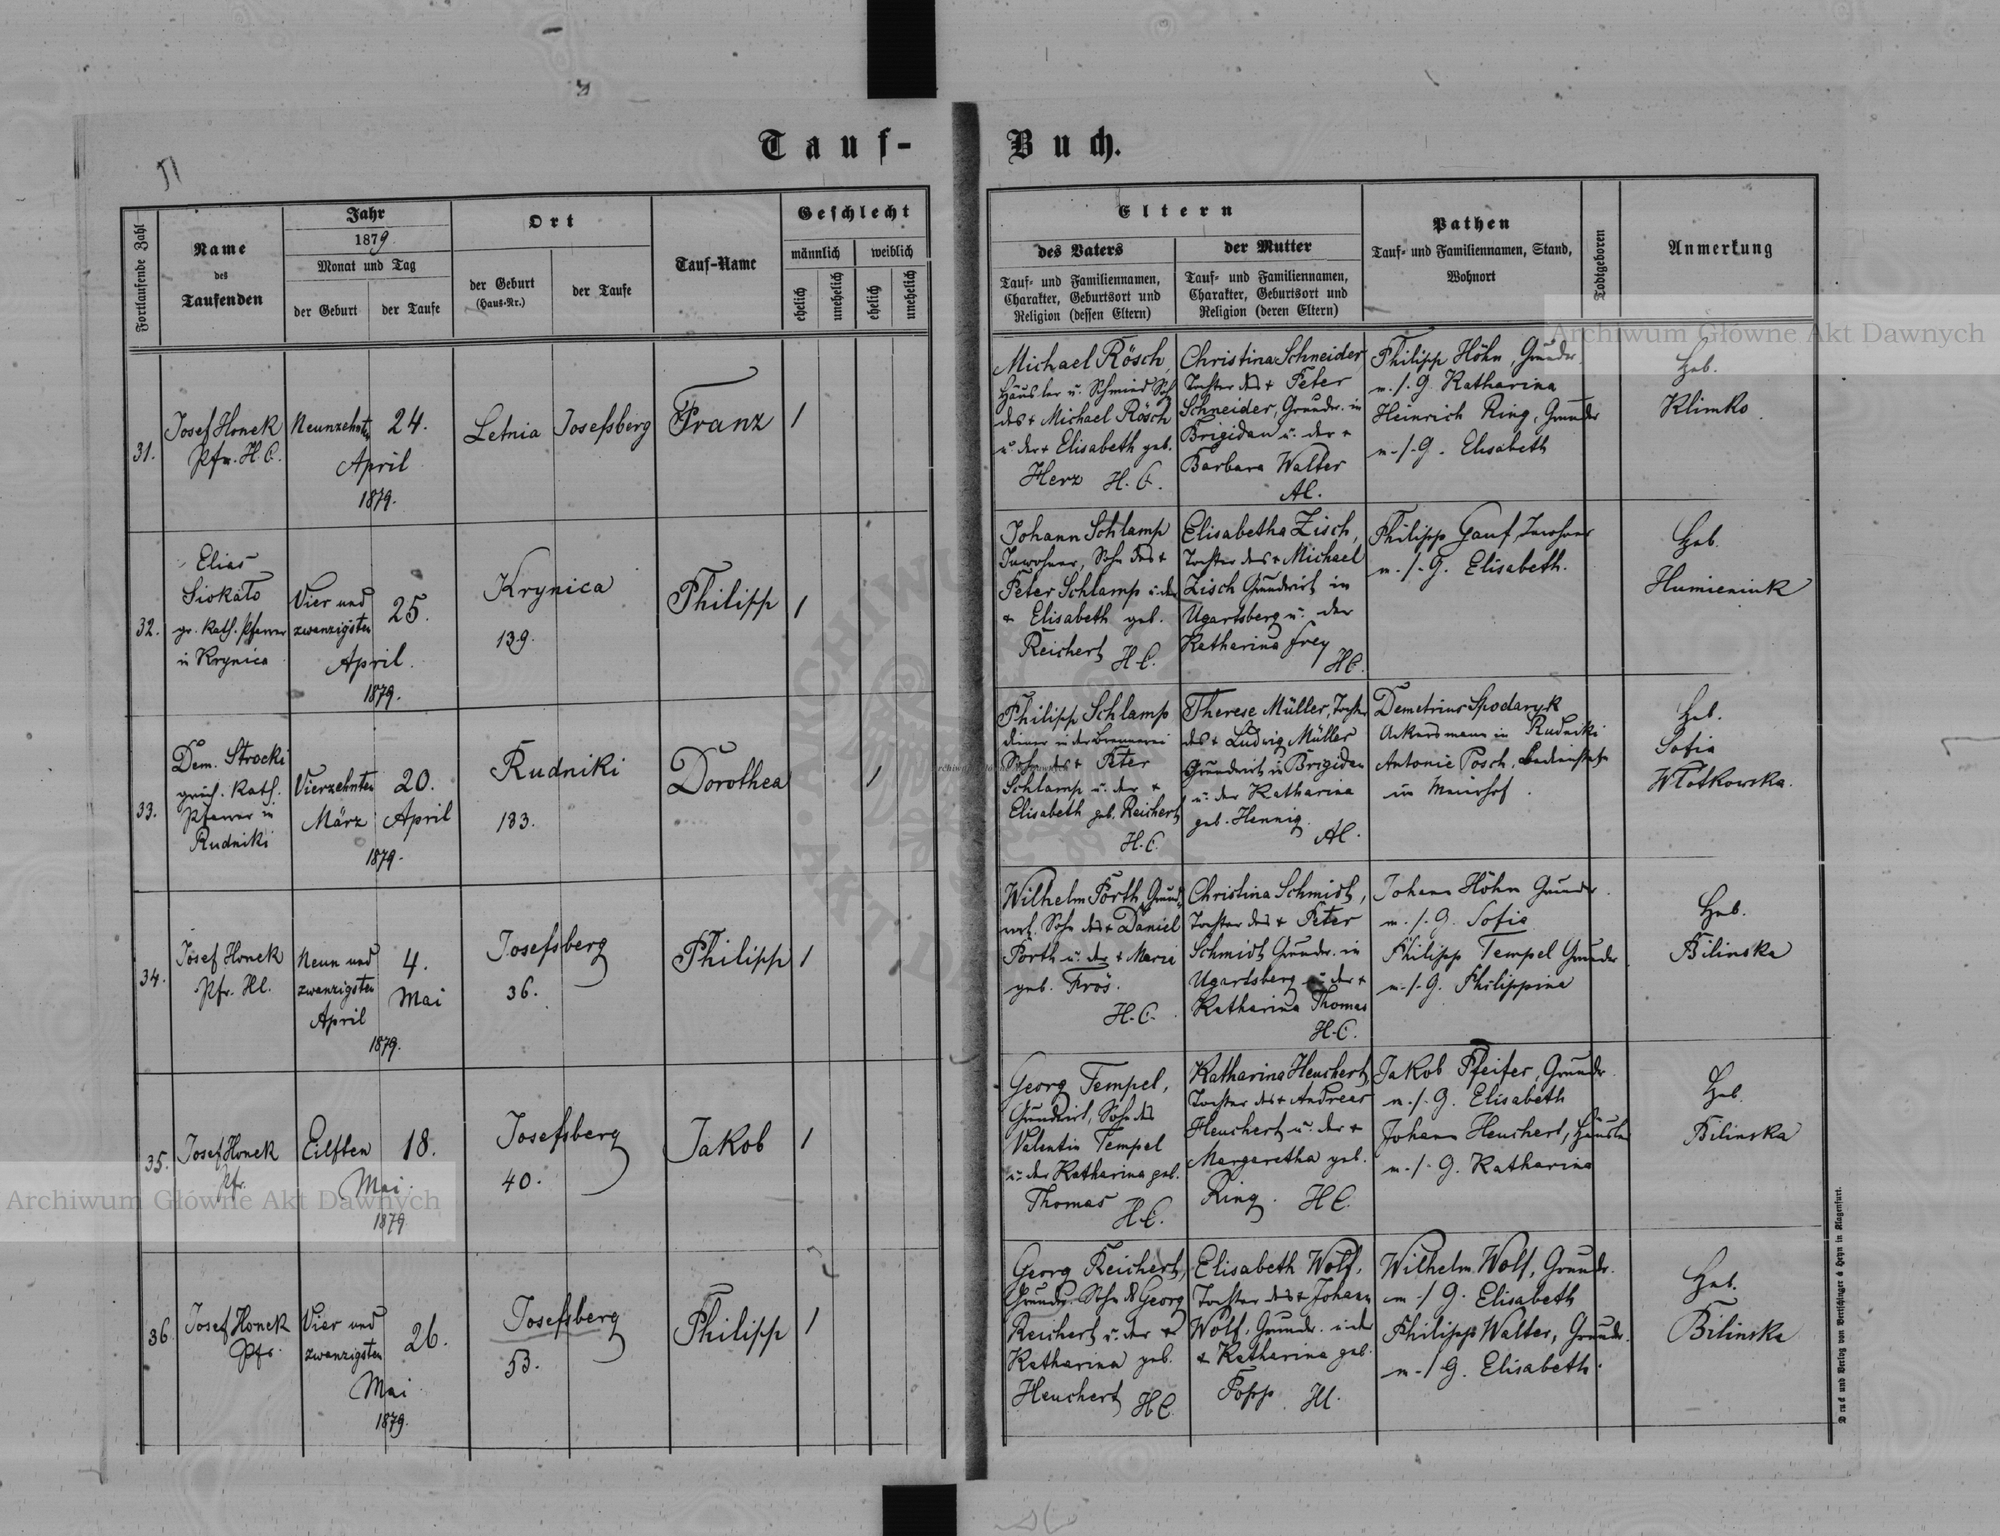 Tauf-Buch.
Fortlaufende Zahl
Name
des
Taufenden
Jahr
1879
Monat und Tag
der Geburt
der Taufe
Ort
der Geburt
(Haus-Nr.)
der Taufe
Tauf-Name
Geschlecht
männlich
weiblich
ehelich
unehelich
ehelich
unehelich
Eltern
des Vaters
Tauf- und Familiennamen,
Charakter, Geburtsort und
Religion (dessen Eltern)
der Mutter
Tauf- und Familiennamen,
Charakter, Geburtsort und
Religion (deren Eltern)
Pathen
Tauf- und Familiennamen, Stand,
Wohnort
Todtgeboren
Anmerkung
31.
Josef Honek
Pfr. H.C.
Neunzehnten
24.
April
1879.
Letnia
Josefsberg
Franz
1
Michael Rösch,
Häusler u. Schmied Sohn
des + Michael Rösch
u. der + Elisabeth geb.
Herz H.C.
Christina Schneider,
Tochter des + Peter
Schneider, Grundr. in
Brigidau u. der +
Barbara Walter
AC.
Philipp Höhn, Grundr.
m./.G. Katharina
Heinrich Ring, Grundr
m./.G. Elisabeth
Heb.
Klimko.
32.
Elias
Siokalo
gr. kath. Pfarrer
in Krynica
Vier und
zwanzigsten
25.
April.
1879.
Krynica
139.
Philipp
1
Johann Schlamp
Inwohner, Sohn des +
Peter Schlamp u. der
+ Elisabeth geb.
Reichert H.C.
Elisabetha Zisch,
Tochter des + Michael
Zisch Grundwirt in
Ugartsberg u. der
Katharina Frey
HC.
Philipp Gauf, Inwohner
m./.G. Elisabeth.
Heb.
Humieniuk
33.
Dem. Strocki
griech. kath.
Pfarrer in
Rudniki
Vierzehnten
März
20.
April
1879.
Rudniki
133.
Dorothea
1
Philipp Schlamp
diener in der Brennerei
Sohn des + Peter
Schlamp u. der +
Elisabeth geb. Reichert
H.C.
Therese Müller, Tochter
des + Ludwig Müller
Grundwirt in Brigidau
u. der Katharina
geb. Hennig.
AC.
Demetrius Spodaryk
Ackersmann in Rudniki
Antonie Posch,
im Meierhof.
Heb.
Sofia
Wlotkowska.
34.
Josef Honek
Pfr. HC.
Neun und
zwanzigsten
April
4.
Mai
1879.
Josefsberg
36.
Philipp
1
Wilhelm Porth, Grund-
wrt. Sohn des + Daniel
Porth u. der + Maria
geb. Frös.
H.C.
Christina Schmidt,
Tochter des + Peter
Schmidt Grundr. in
Ugartsberg u. der +
Katharina Thomas
H.C.
Johann Höhn Grundr.
m./.G. Sofia
Philipp Tempel Grundr
m./.G. Philippina
Heb.
Bilinska
35.
Josef Honek
Pfr.
Eilften
18.
Mai.
1879
Josefsberg
40.
Jakob
1
Georg Tempel,
Grundwirt, Sohn des
Valentin Tempel
u. der Katharina geb.
Thomas H.C.
Katharina Heuchert,
Tochter des + Andreas
Heuchert u. der +
Margaretha geb.
Ring. HC.
Jakob Pfeifer, Grundr.
m./.G. Elisabeth
Johann Heuchert, Häusler
m./.G. Katharina
Heb.
Bilinska
36
Josef Honek
Pfr.
Vier und
zwanzigsten
26.
Mai.
1879.
Josefsberg
53.
Philipp
1
Georg Reichert,
Grundr. Sohn d. Georg
Reichert u. der +
Katharina geb.
Heuchert HC.
Elisabeth Wolf,
Tochter des + Johann
Wolf, Grundr. u. der
+ Katharina geb.
Popp. HC.
Wilhelm Wolf, Grundr.
m./G. Elisabeth
Philipp Walter, Grundr.
m./G. Elisabeth.
Heb.
Bilinska
Druck und Verlag von Bertschinger & Heyn in Klagenfurt.
Archiwum Główne Akt Dawnych
Archiwum Główne Akt Dawnych